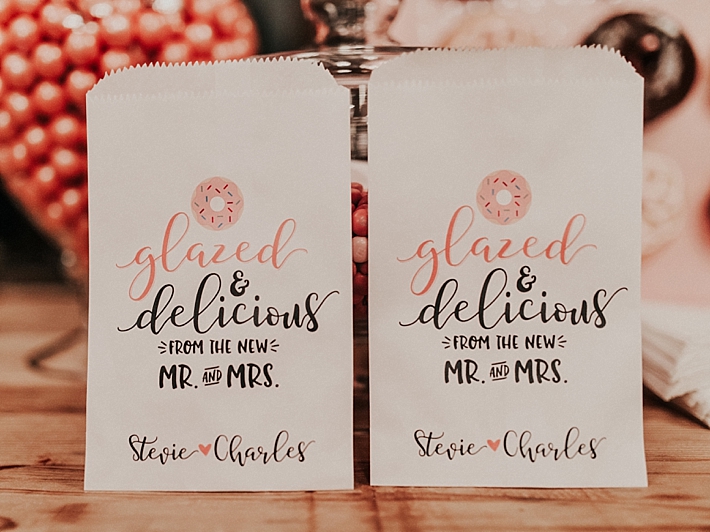 glazed
&
delicious
FROM THE NEW
MR. AND MRS.
Stevie ♥ Charles
glazed
&
delicious
FROM THE NEW
MR. AND MRS.
Stevie ♥ Charles